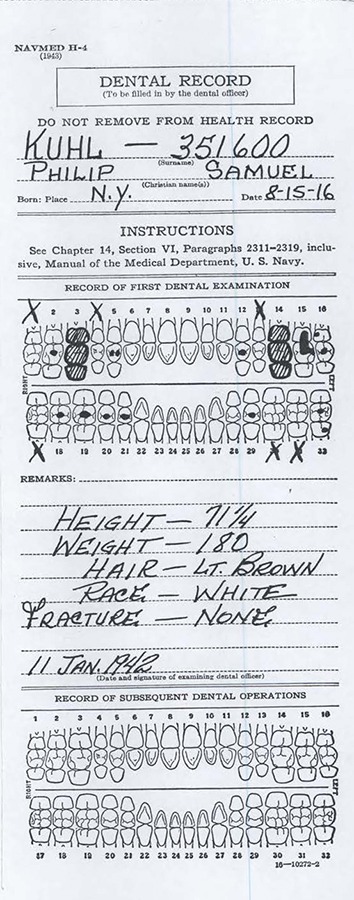 NAVMED H-4
(1943)
DENTAL RECORD
(To be filled in by the dental officer)
DO NOT REMOVE FROM HEALTH RECORD
KUHL — 351600
(Surname)
PHILIP SAMUEL
(Christian name(s))
Born: Place N.Y. Date 8-15-16
INSTRUCTIONS
See Chapter 14, Section VI, Paragraphs 2311–2319, inclu-
sive, Manual of the Medical Department, U. S. Navy.
RECORD OF FIRST DENTAL EXAMINATION
X 2 3 X 5 6 7 8 9 10 11 12 X 14 15 16
RIGHT LEFT
X 18 19 20 21 22 23 24 25 26 27 28 29 X X 32
REMARKS:
HEIGHT — 71 1/4
WEIGHT — 180
HAIR — LT. BROWN
RACE — WHITE
FRACTURE — NONE
11 JAN. 1942
(Date and signature of examining dental officer)
RECORD OF SUBSEQUENT DENTAL OPERATIONS
1 2 3 4 5 6 7 8 9 10 11 12 13 14 15 16
RIGHT LEFT
17 18 19 20 21 22 23 24 25 26 27 28 29 30 31 32
16—10272-2